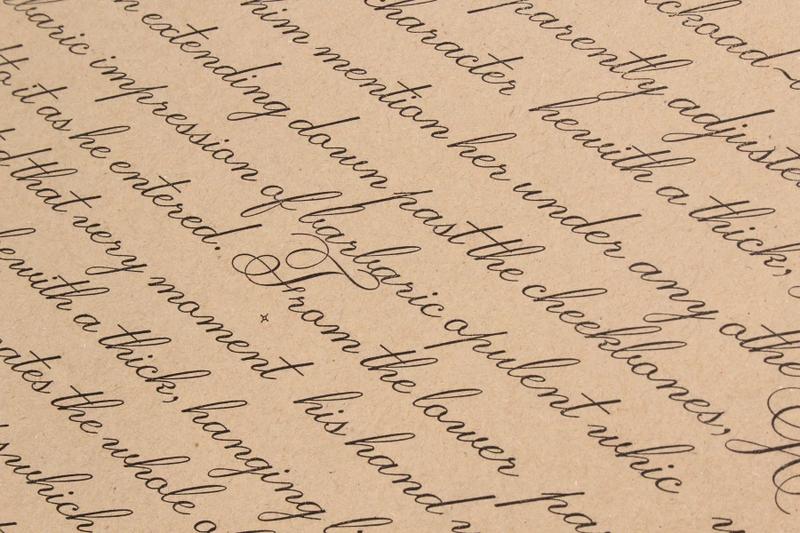 parently adjusted
character hewith a thick,
him mention her under any othe
n extending down past the cheekbones,
baric impression of barbaric opulent whic
to it as he entered. From the lower pa
that very moment his hand
with a thick, hanging
the whole
which